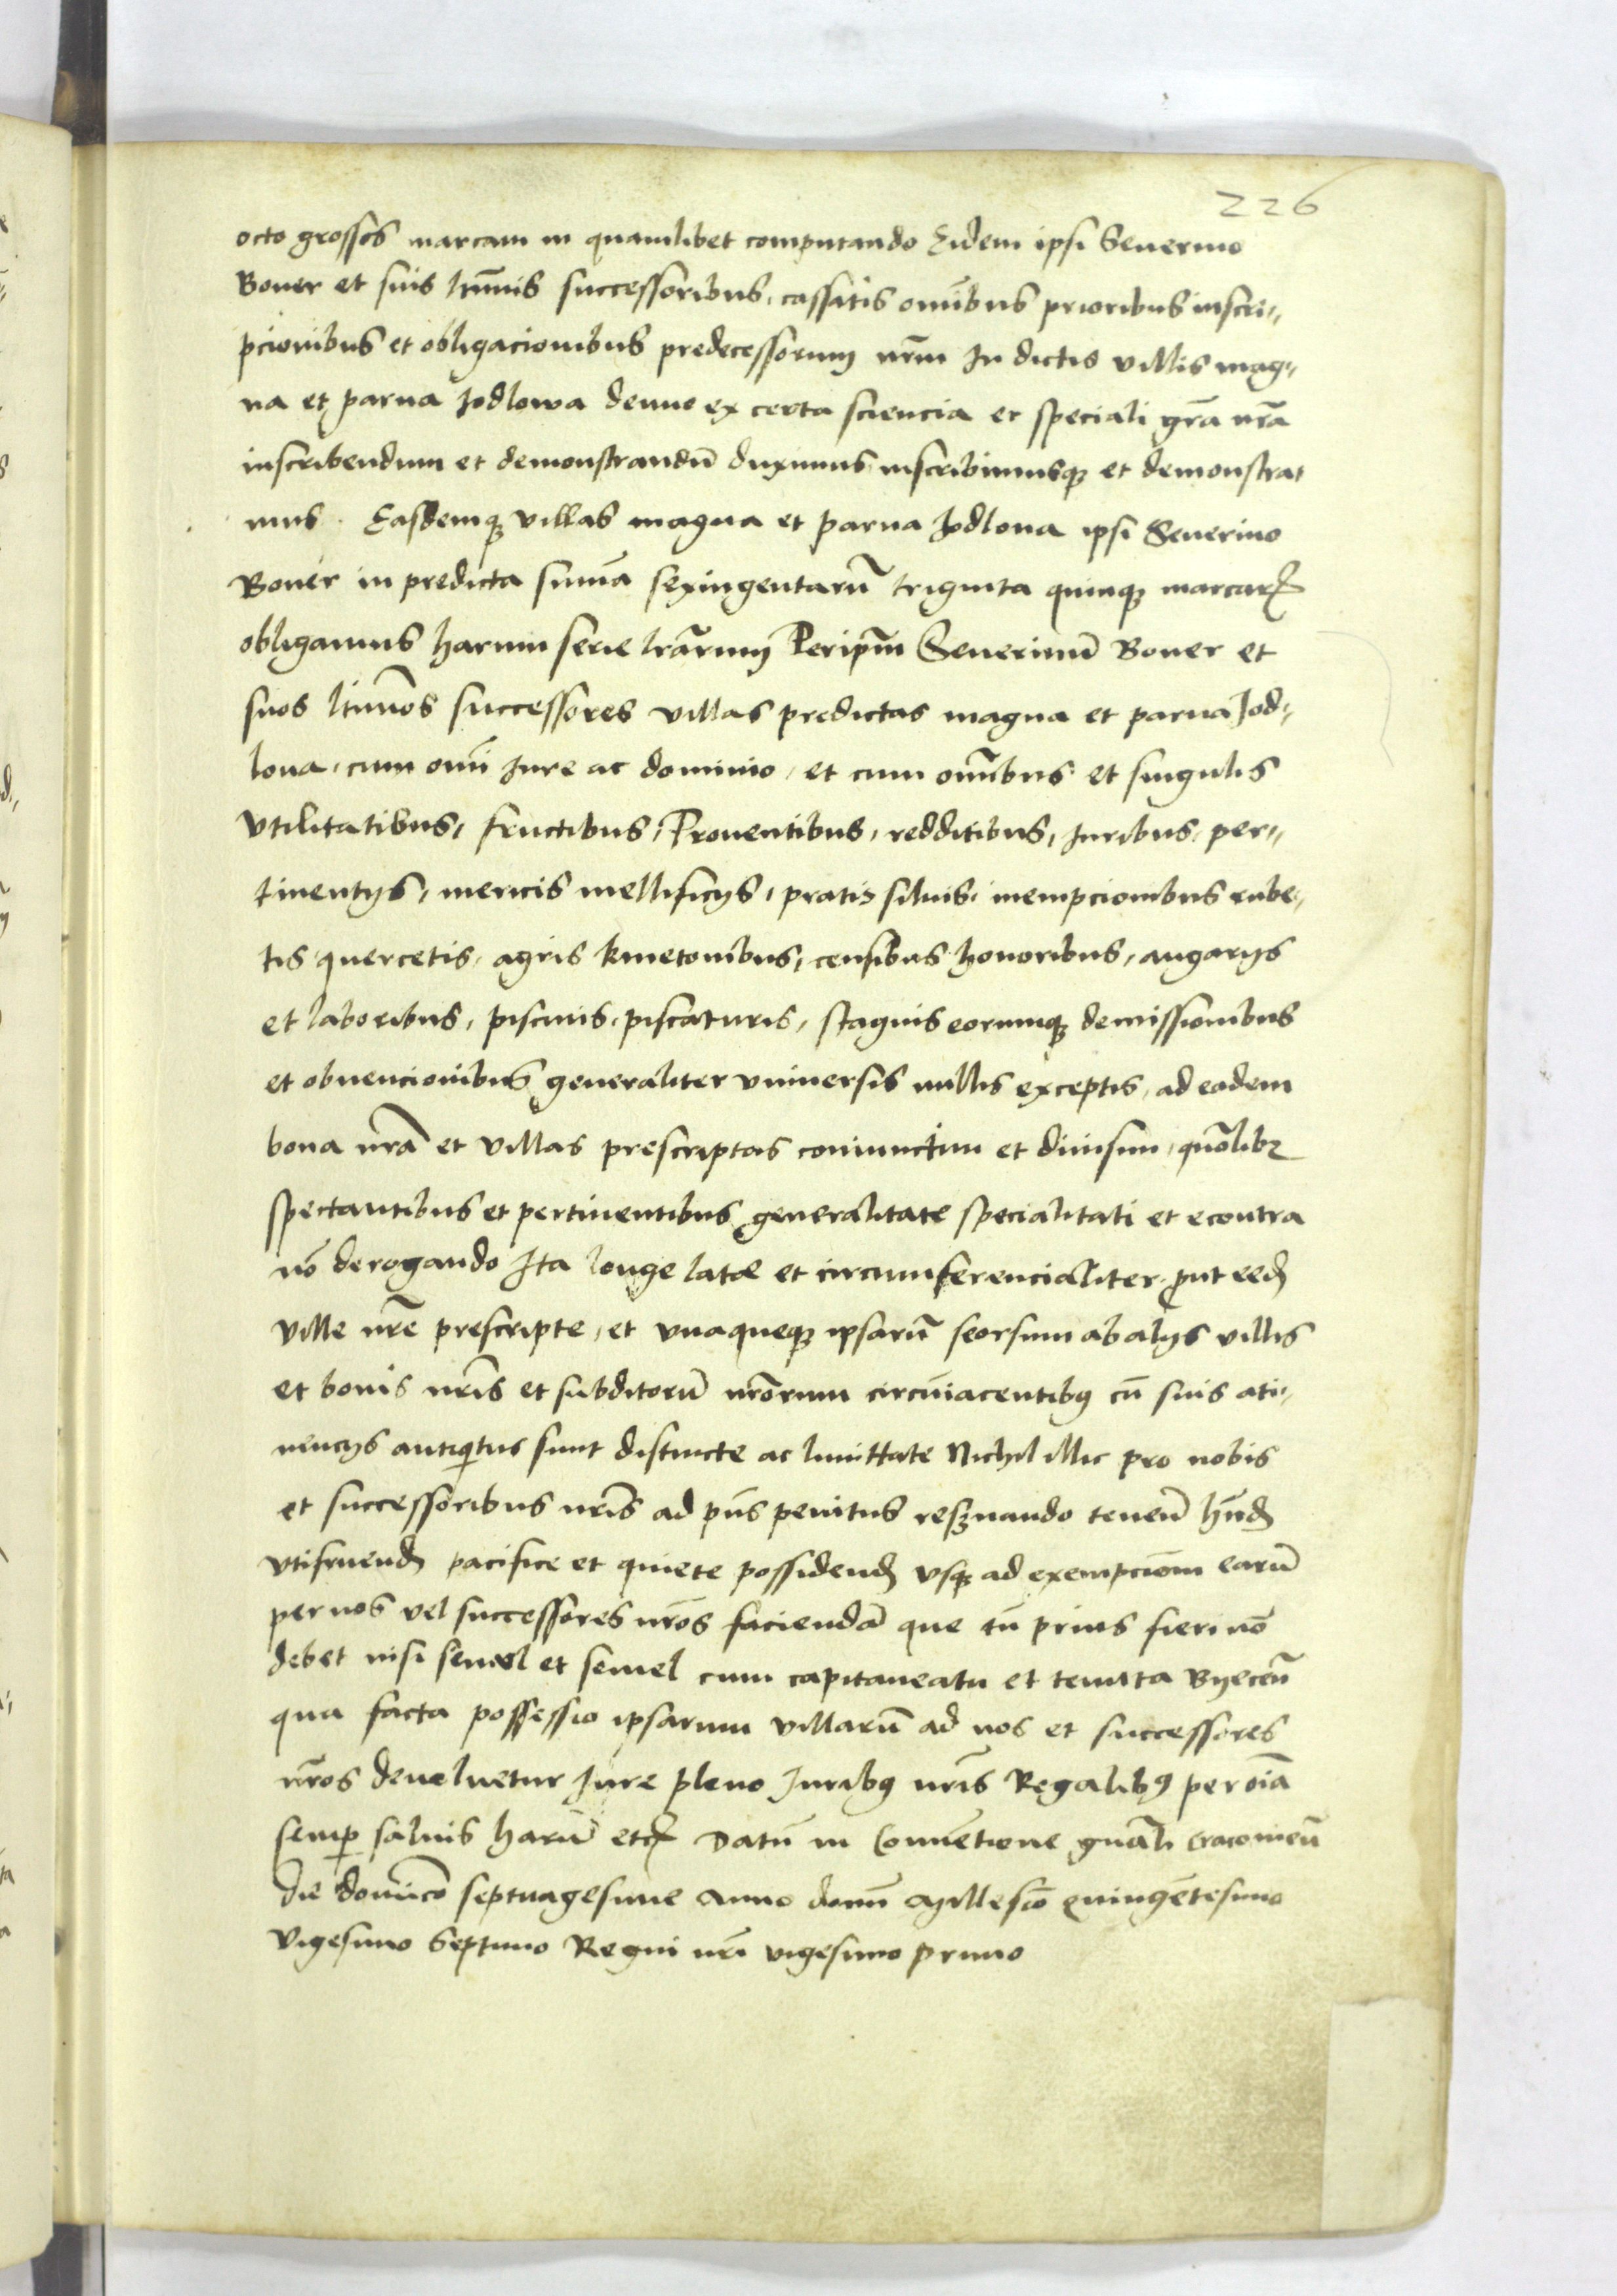 226
octo grossos marcam in quamlibet computando Eidem ipsi Seuerino
Boner et suis ltimis successoribus, cassatis omībus prioribus inscri„
pcionibus et obligacionibus predecessorum nrm̄ In dictis villis mag„
na et parua Jodlowa denuo ex certa sciencia et speciali gr̄a nr̄a
inscribendum et demonstrandū duximus inscribimusq̨ et demonstra
mus. Easdemq̨ villas magna et parua Jodlona ipsi Seuerino
Boner in predicta suma̅ sexingentarū triginta quinq̨ marcarꝝ
obligamus harum serie lr̄arum Per ipm̄ Seuerinū Boner et
suos ltimos successores villas predictas magna et parua Jod„
loua, cum omī Jure ac dominio, et cum omībus et singulis
vtilitatibus, fructibus, Prouentibus, redditibus, Juribus, per„
tinentÿs, mericis mellificÿs, pratis siluis, mempcionibus rube„
tis quercetis, agris kmetonibus, censibus honoribus, angarÿs
et laboribus, piscinis, piscaturis, stagnis eorumq̨ demissionibus
et obuencionibus generaliter vniuersis nullis exceptis, ad eadem
bona nr̄a et villas prescriptas coniunctim et diuisim, quōlibꝫ
spectantibus et pertinentibus generalitate specialitati et econtra
nō derogando Ita longe late et circumferencialiter, ꝓut eedꝫ
ville nr̄e prescripte, et vnaqueq̨ ipsarū seorsum ab alÿs villis
et bonis nr̄is et subditorū nr̄orum circūiacentibꝰ cū suis ati„
nencÿs antiqitus sunt distincte ac limittate Nichil illic pro nobis
et successoribus nr̄is ad pn̄s penitus reseruando teneñ hn̄dꝫ
vtifruendꝫ pacifice et quiete possidendꝫ vsq̨ ad exempcionem earū
per nos vel successores nr̄os faciendā que tn̄ prius fieri nō
debet nisi semel et semel cum capitaneatu et tenuta Byeceñ
qua facta possessio ipsarum villarū ad nos et successores
nr̄os deuoluetur Jure pleno Juribꝰ nr̄is Regalibꝰ per oīa
semp̱ saluis harū etcꝝ Datū in Conuētione gn̄ali Cracouieñ
die dominico septuagesime Anno domī Millesīo quingētesimo
Vigesimo Septimo Regni nr̄i vigesimo primo